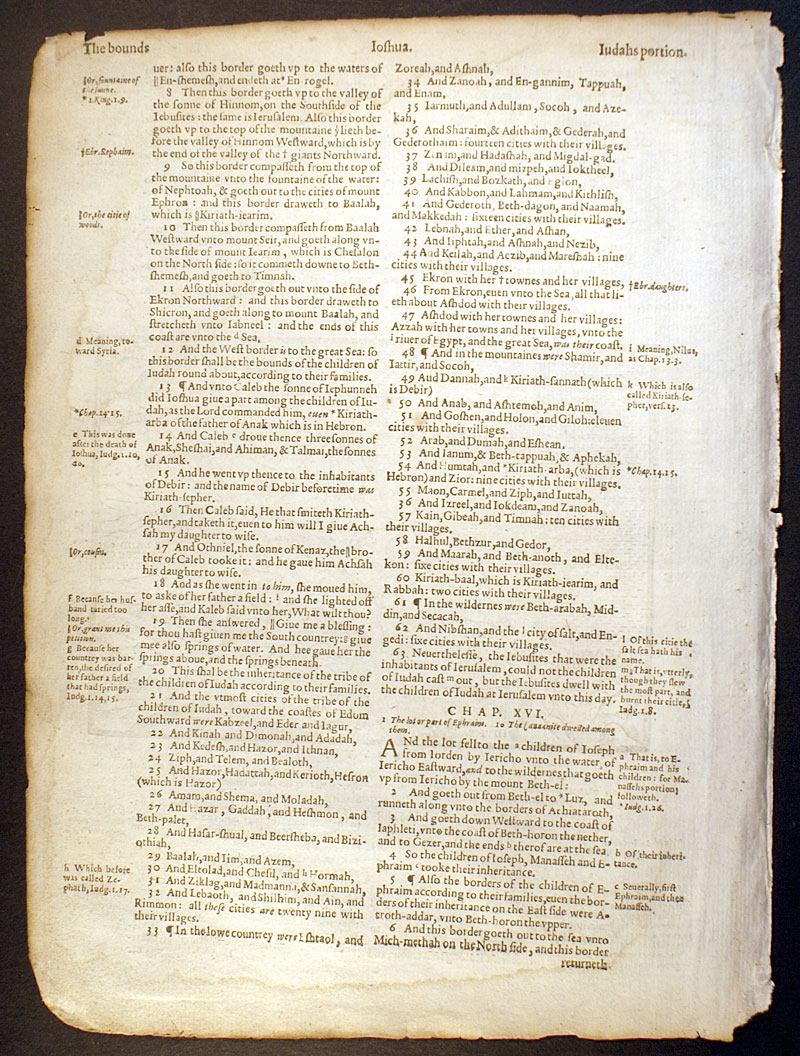 The bounds
Ioshua.
Iudahs portion.
‖Or, fountaine of
the sunne.
* 1.King.1.9.
†Ebr.Rephaim.
‖Or, the citie of
woods.
d Meaning, to-
ward Syria.
*Chap.14.15.
e This was done
after the death of
Ioshua, Iudg.1.10,
20.
‖Or, cousin.
f Because her hus-
band taried too
long.
‖Or, grant me this
petition.
g Because her
countrey was bar-
ren, she desired of
her father a field
that had springs,
Iudg.1.14,15.
h Which before
was called Ze-
phath, Iudg.1.17.
uer: also this border goeth vp to the waters of
‖En-shemesh, and endeth at* En-rogel.
8 Then this border goeth vp to the valley of
the sonne of Hinnom, on the Southside of the
Iebusites: the same is Ierusalem. Also this border
goeth vp to the top of the mountaine yͭ lieth be-
fore the valley of Hinnom Westward, which is by
the end of the valley of the † giants Northward.
9 So this border compasseth from the top of
the mountaine vnto the fountaine of the water
of Nephtoah, & goeth out to the cities of mount
Ephron: and this border draweth to Baalah,
which is ‖Kiriath-iearim.
10 Then this border compasseth from Baalah
Westward vnto mount Seir, and goeth along vn-
to the side of mount Iearim, which is Chesalon
on the North side: so it commeth downe to Beth-
shemesh, and goeth to Timnah.
11 Also this border goeth out vnto the side of
Ekron Northward: and this border draweth to
Shicron, and goeth along to mount Baalah, and
stretcheth vnto Iabneel: and the ends of this
coast are vnto the d Sea.
12 And the West border is to the great Sea: so
this border shall be the bounds of the children of
Iudah round about, according to their families.
13 ¶ And vnto Caleb the sonne of Iephunneh
did Ioshua giue a part among the children of Iu-
dah, as the Lord commanded him, euen * Kiriath-
arba of the father of Anak which is in Hebron.
14 And Caleb e droue thence three sonnes of
Anak, Sheshai, and Ahiman, & Talmai, the sonnes
of Anak.
15 And he went vp thence to the inhabitants
of Debir: and the name of Debir beforetime was
Kiriath-sepher.
16 Then Caleb said, He that smiteth Kiriath-
sepher, and taketh it, euen to him will I giue Ach-
sah my daughter to wife.
17 And Othniel, the sonne of Kenaz, the ‖bro-
ther of Caleb tooke it: and he gaue him Achsah
his daughter to wife.
18 And as she went in to him, she moued him,
to aske of her father a field: f and she lighted off
her asse, and Kaleb said vnto her, What wilt thou?
19 Then she answered, ‖Giue me a blessing:
for thou hast giuen me the South countrey: g giue
mee also springs of water. And hee gaue her the
springs aboue, and the springs beneath.
20 This shall be the inheritance of the tribe of
the children of Iudah according to their families.
21 And the vtmost cities of the tribe of the
children of Iudah, toward the coastes of Edom
Southward were Kabzeel, and Eder and Iagur,
22 And Kinah and Dimonah, and Adadah,
23 And Kedesh, and Hazor, and Ithnan,
24 Ziph, and Telem, and Bealoth,
25 And Hazor, Hadattah, and Kerioth, Hesron
(which is Hazor)
26 Amam, and Shema, and Moladah,
27 And Hazar, Gaddah, and Heshmon, and
Beth-palet,
28 And Hasar-shual, and Beersheba, and Bizi-
othiah,
29 Baalah, and Iim, and Azem,
30 And Eltolad, and Chesil, and h Hormah,
31 And Ziklag, and Madmanna, & Sansannah,
32 And Lebaoth, and Shilhim, and Ain, and
Rimmon: all these cities are twenty nine with
their villages.
33 ¶ In the lowe countrey were Eshtaol, and
Zoreah, and Ashnah,
34 And Zanoah, and En-gannim, Tappuah,
and Enam,
35 Iarmuth, and Adullam, Socoh, and Aze-
kah,
36 And Sharaim, & Adithaim, & Gederah, and
Gederothaim: fourteen cities with their villages.
37 Zenam, and Hadashah, and Migdal-gad.
38 And Dileam, and mizpeh, and Ioktheel,
39 Lachish, and Bozkath, and Eglon,
40 And Kabbon, and Lahmam, and Kithlish,
41 And Gederoth, Beth-dagon, and Naamah,
and Makkedah: sixteene cities with their villages.
42 Lebnah, and Ether, and Ashan,
43 And Iiphtah, and Ashnah, and Nezib,
44 And Keilah, and Aczib, and Mareshah: nine
cities with their villages.
45 Ekron with her † townes and her villages,
46 From Ekron, euen vnto the Sea, all that li-
eth about Ashdod with their villages.
47 Ashdod with her townes and her villages:
Azzah with her townes and her villages, vnto the
i riuer of Egypt, and the great Sea, was their coast.
48 ¶ And in the mountaines were Shamir, and
Iattir, and Socoh,
49 And Dannah, and k Kiriath-sannath (which
is Debir)
50 And Anab, and Ashtemoh, and Anim,
51 And Goshen, and Holon, and Giloh: eleuen
cities with their villages.
52 Arab, and Dumah, and Eshean,
53 And Ianum, & Beth-tappuah, & Aphekah,
54 And Humtah, and *Kiriath-arba, (which is
Hebron) and Zior: nine cities with their villages.
55 Maon, Carmel, and Ziph, and Iuttah,
36 And Izreel, and Iokdeam, and Zanoah,
57 Kain, Gibeah, and Timnah: ten cities with
their villages.
58 Halhul, Bethzur, and Gedor,
59 And Maarah, and Beth-anoth, and Elte-
kon: sixe cities with their villages.
60 Kiriath-baal, which is Kiriath-iearim, and
Rabbah: two cities with their villages.
61 ¶ In the wildernes were Beth-arabah, Mid-
din, and Secacah,
62 And Nibshan, and the l city of salt, and En-
gedi: sixe cities with their villages.
63 Neuerthelesse, the Iebusites that were the
inhabitants of Ierusalem, could not the children
of Iudah cast m out, but the Iebusites dwell with
the children of Iudah at Ierusalem vnto this day.
CHAP. XVI.
1 The lot or part of Ephraim. 10 The Canaanite dwelled among
them.
ANd the lot fell to the a children of Ioseph
from Iorden by Iericho vnto the water of
Iericho Eastward, and to the wildernes that goeth
vp from Iericho by the mount Beth-el:
2 And goeth out from Beth-el to * Luz, and
runneth along vnto the borders of Achiataroth,
3 And goeth down Westward to the coast of
Iaphleti, vnto the coast of Beth-horon the nether,
and to Gezer, and the ends b therof are at the sea.
4 So the children of Ioseph, Manasseh and E-
phraim c tooke their inheritance.
5 ¶ Also the borders of the children of E-
phraim according to their families, euen the bor-
ders of their inheritance on the East side were A-
troth-addar, vnto Beth-horon the vpper.
6 And this border goeth out to the sea vnto
Mich-methah on the North side, and this border
returneth
†Ebr.daughters.
i Meaning, Nilus,
as Chap.13.3.
k Which is also
called Kiriath-se-
pher, vers.13.
*Chap.14.15.
l Of this citie the
salt sea hath his
name.
m That is, vtterly,
though they slew
the most part, and
burnt their citie,
Iudg.1.8.
a That is, to E-
phraim and his
children: for Ma-
nassehs portion
followeth.
*Iudg.1.26.
b Of their inheri-
tance.
c Seuerally, first
Ephraim, and then
Manasseh.